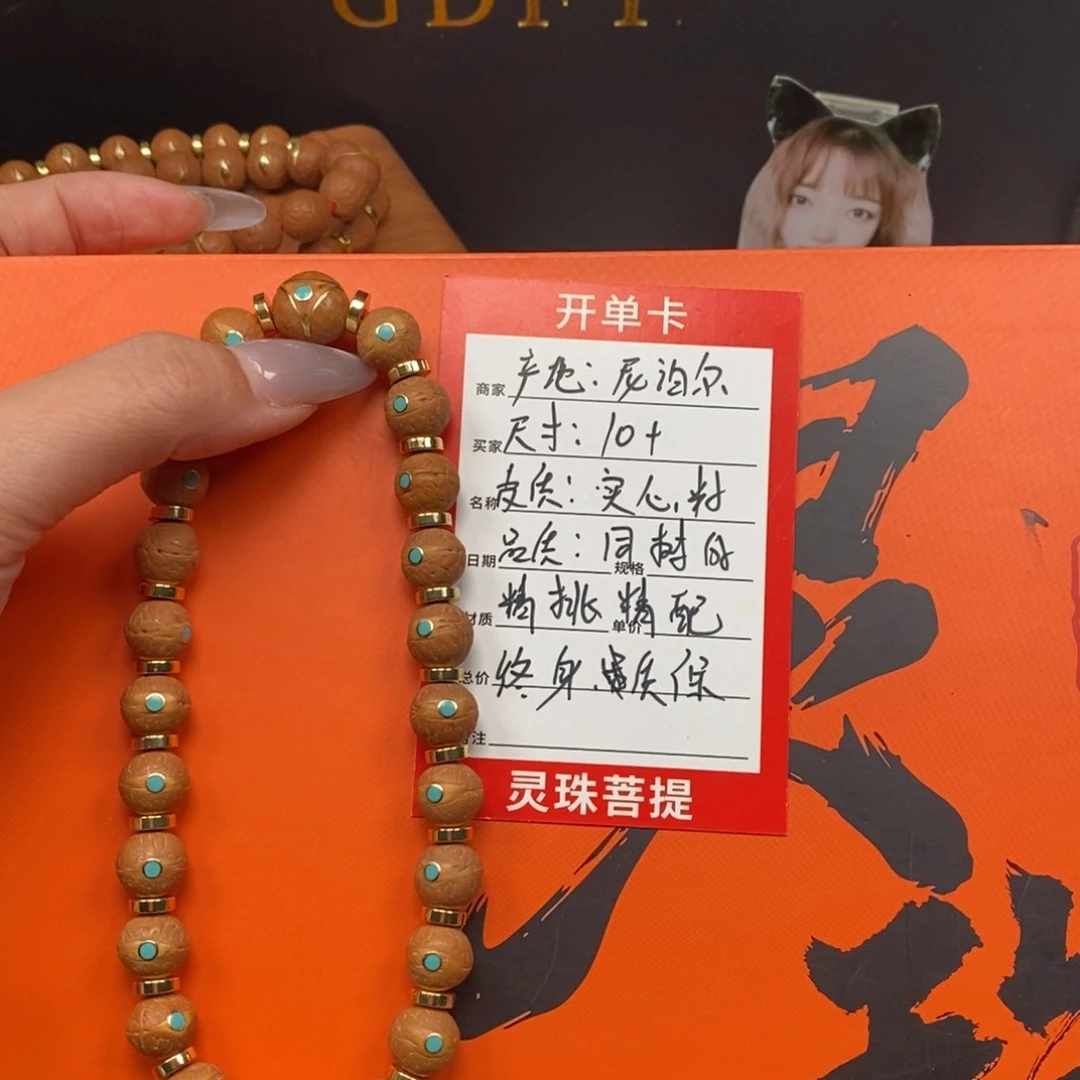 GDFT
开单卡
商家 产地：尼泊尔
买家 尺寸：10+
名称 皮质：实心籽
日期 品质：同树的 规格
材质 精挑 单价 精配
总价 终身质保
备注
灵珠菩提
灵珠